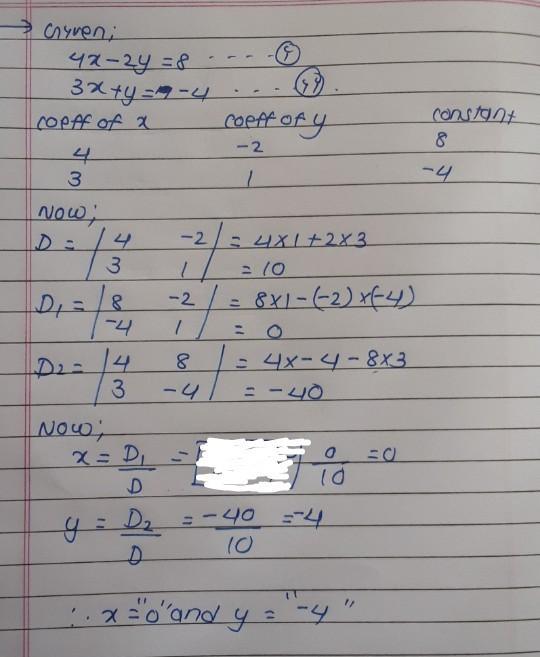 → Given;
4x-2y=8 ---- (i)
3x+y=-4 --- (ii).
coeff of x coeff of y constant
4 -2 8
3 1 -4
Now;
D = | 4 -2 | = 4x1+2x3
| 3 1 | = 10
D₁ = | 8 -2 | = 8x1-(-2)x(-4)
| -4 1 | = 0
D₂ = | 4 8 | = 4x-4-8x3
| 3 -4 | = -40
Now;
x = D₁/D = 0/10 = 0
y = D₂/D = -40/10 = -4
∴ x = "0" and y = "-4"